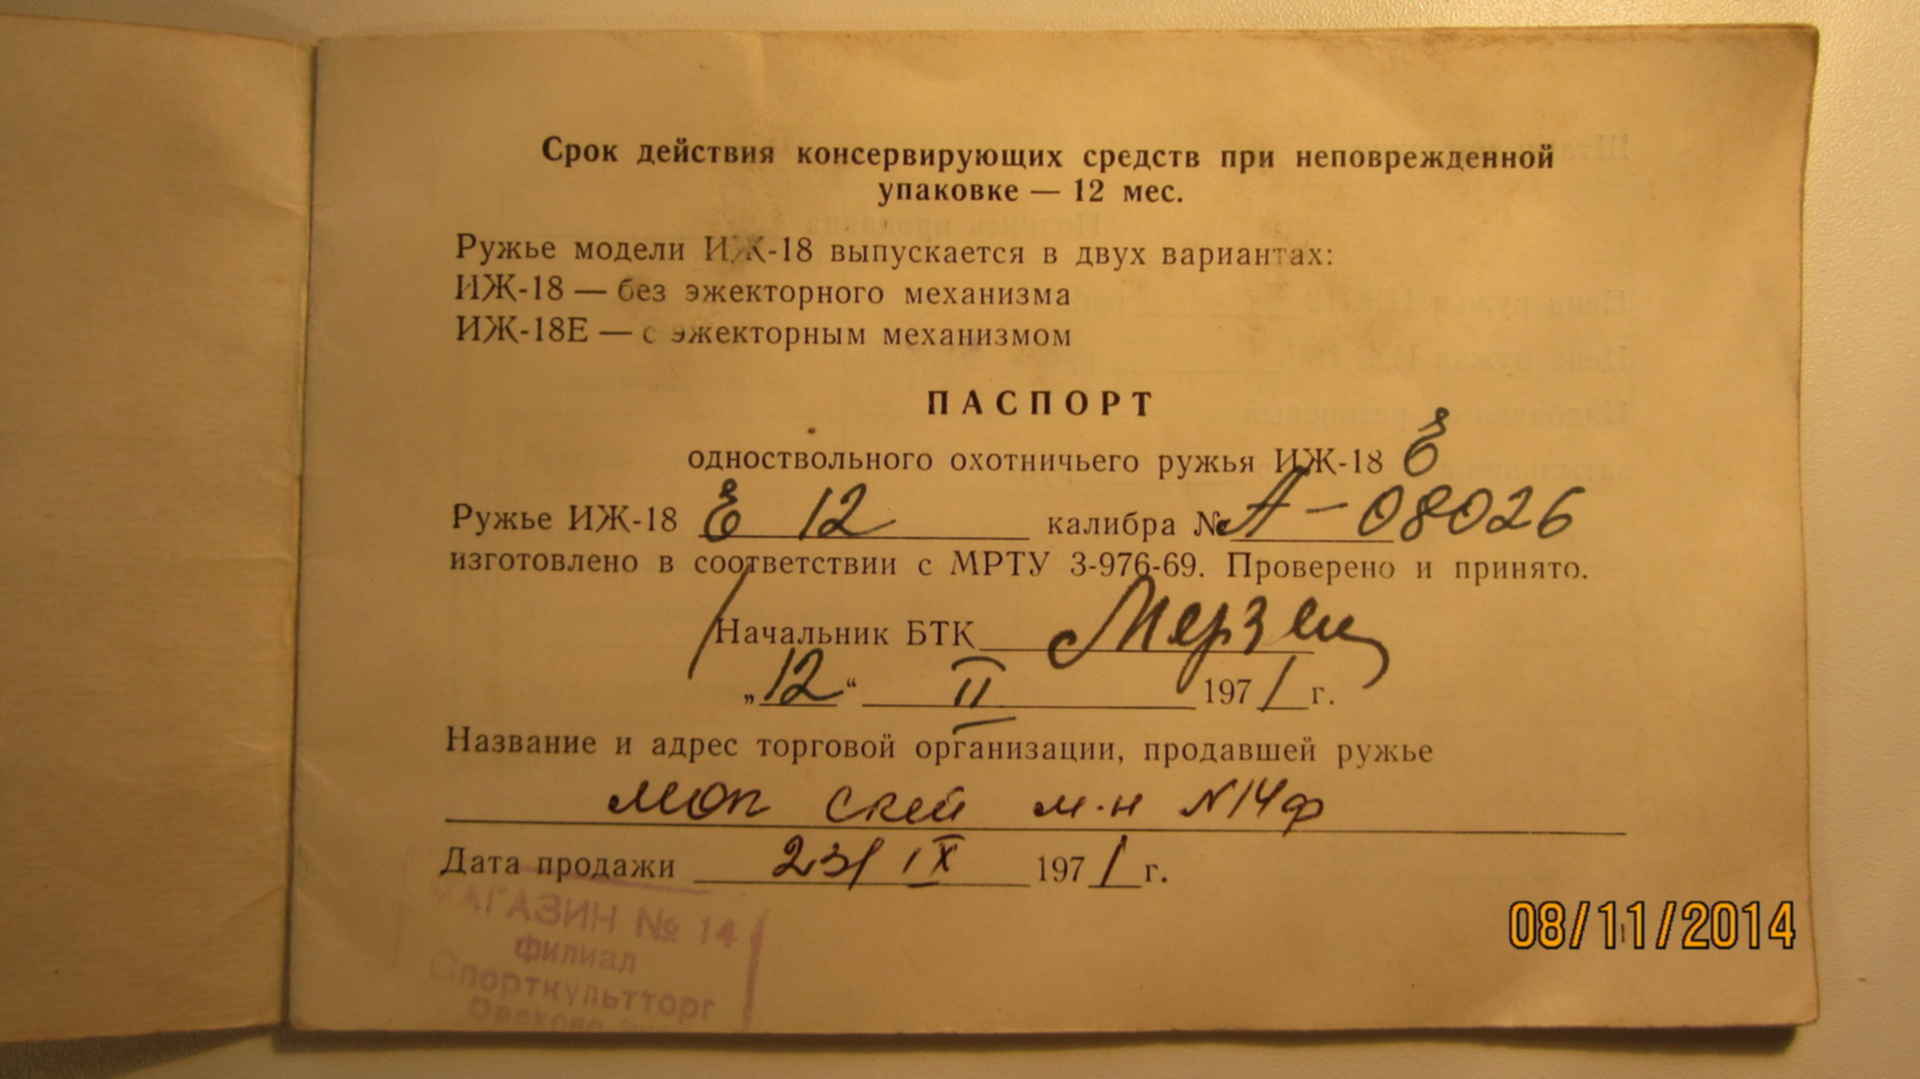 Срок действия консервирующих средств при неповрежденной
упаковке — 12 мес.
Ружье модели ИЖ-18 выпускается в двух вариантах:
ИЖ-18 — без эжекторного механизма
ИЖ-18Е — с эжекторным механизмом
ПАСПОРТ
одноствольного охотничьего ружья ИЖ-18 Е
Ружье ИЖ-18 Е 12 калибра № А-08026
изготовлено в соответствии с МРТУ 3-976-69. Проверено и принято.
Начальник БТК
„12“ II 1971 г.
Название и адрес торговой организации, продавшей ружье
м-н N14ф
Дата продажи 23/IX 1971 г.
МАГАЗИН № 14
филиал
Спорткультторг
08/11/2014